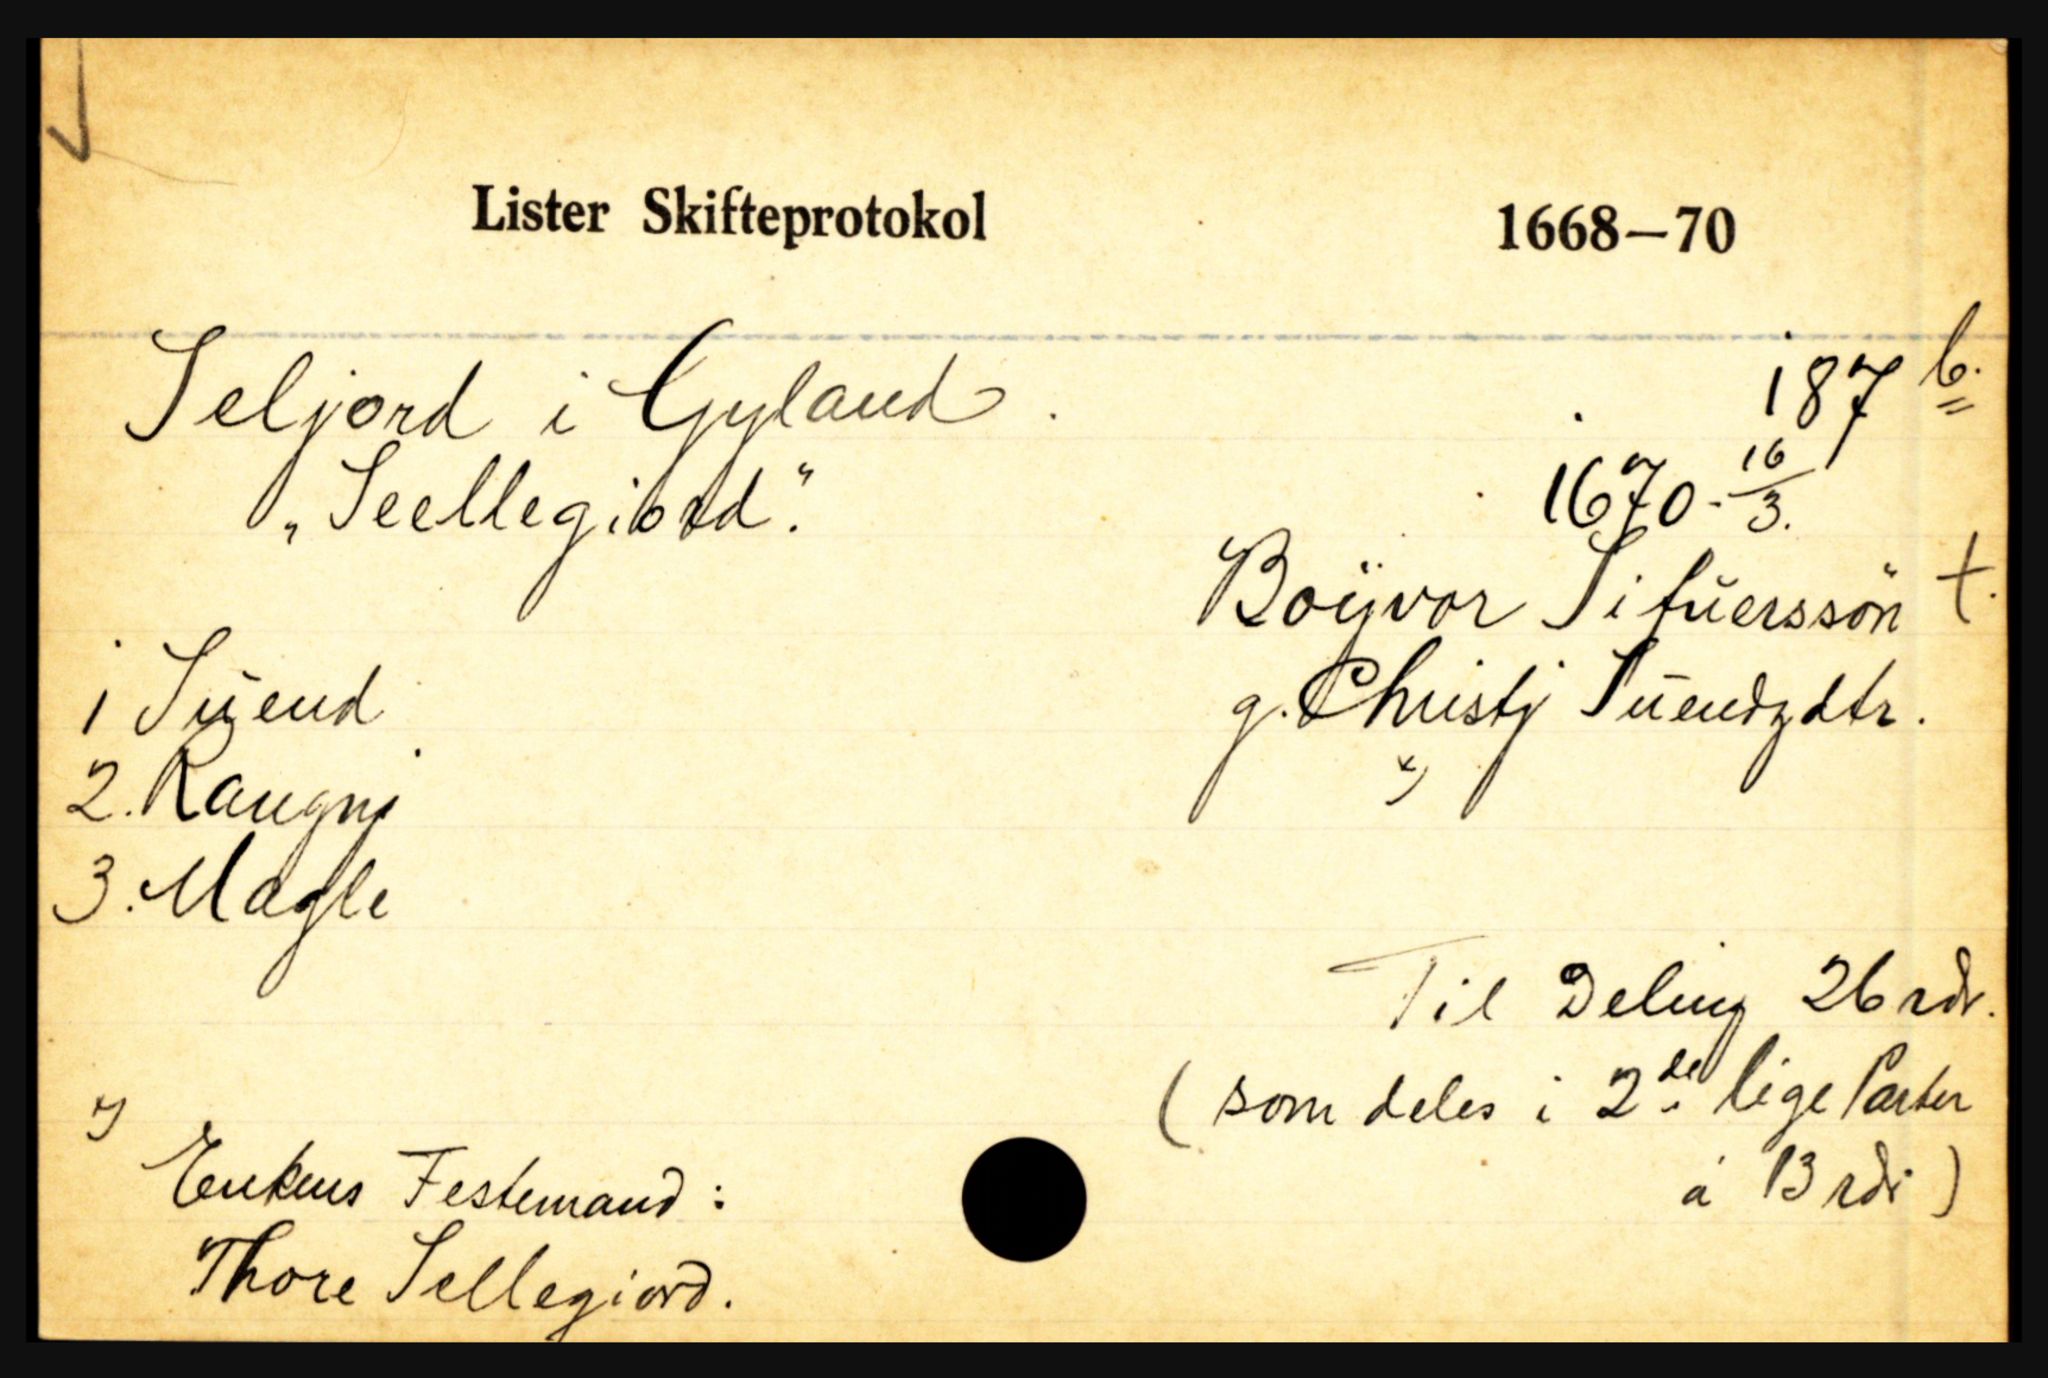 Lister Skifteprotokol 1668–70
Seljord i Gyland. 187 b.
„Seellegiord". 1670 - 16/3.
Boÿvor Sifŭerssön †.
1 Sŭend g. Christj Sŭendzdtr.
2. Raugnj x)
3. Magle
Til Deling 26 rdr.
(som deles i 2de lige Parter
á 13 rdr)
x) Enkens Festemand:
Thore Sellegiord.